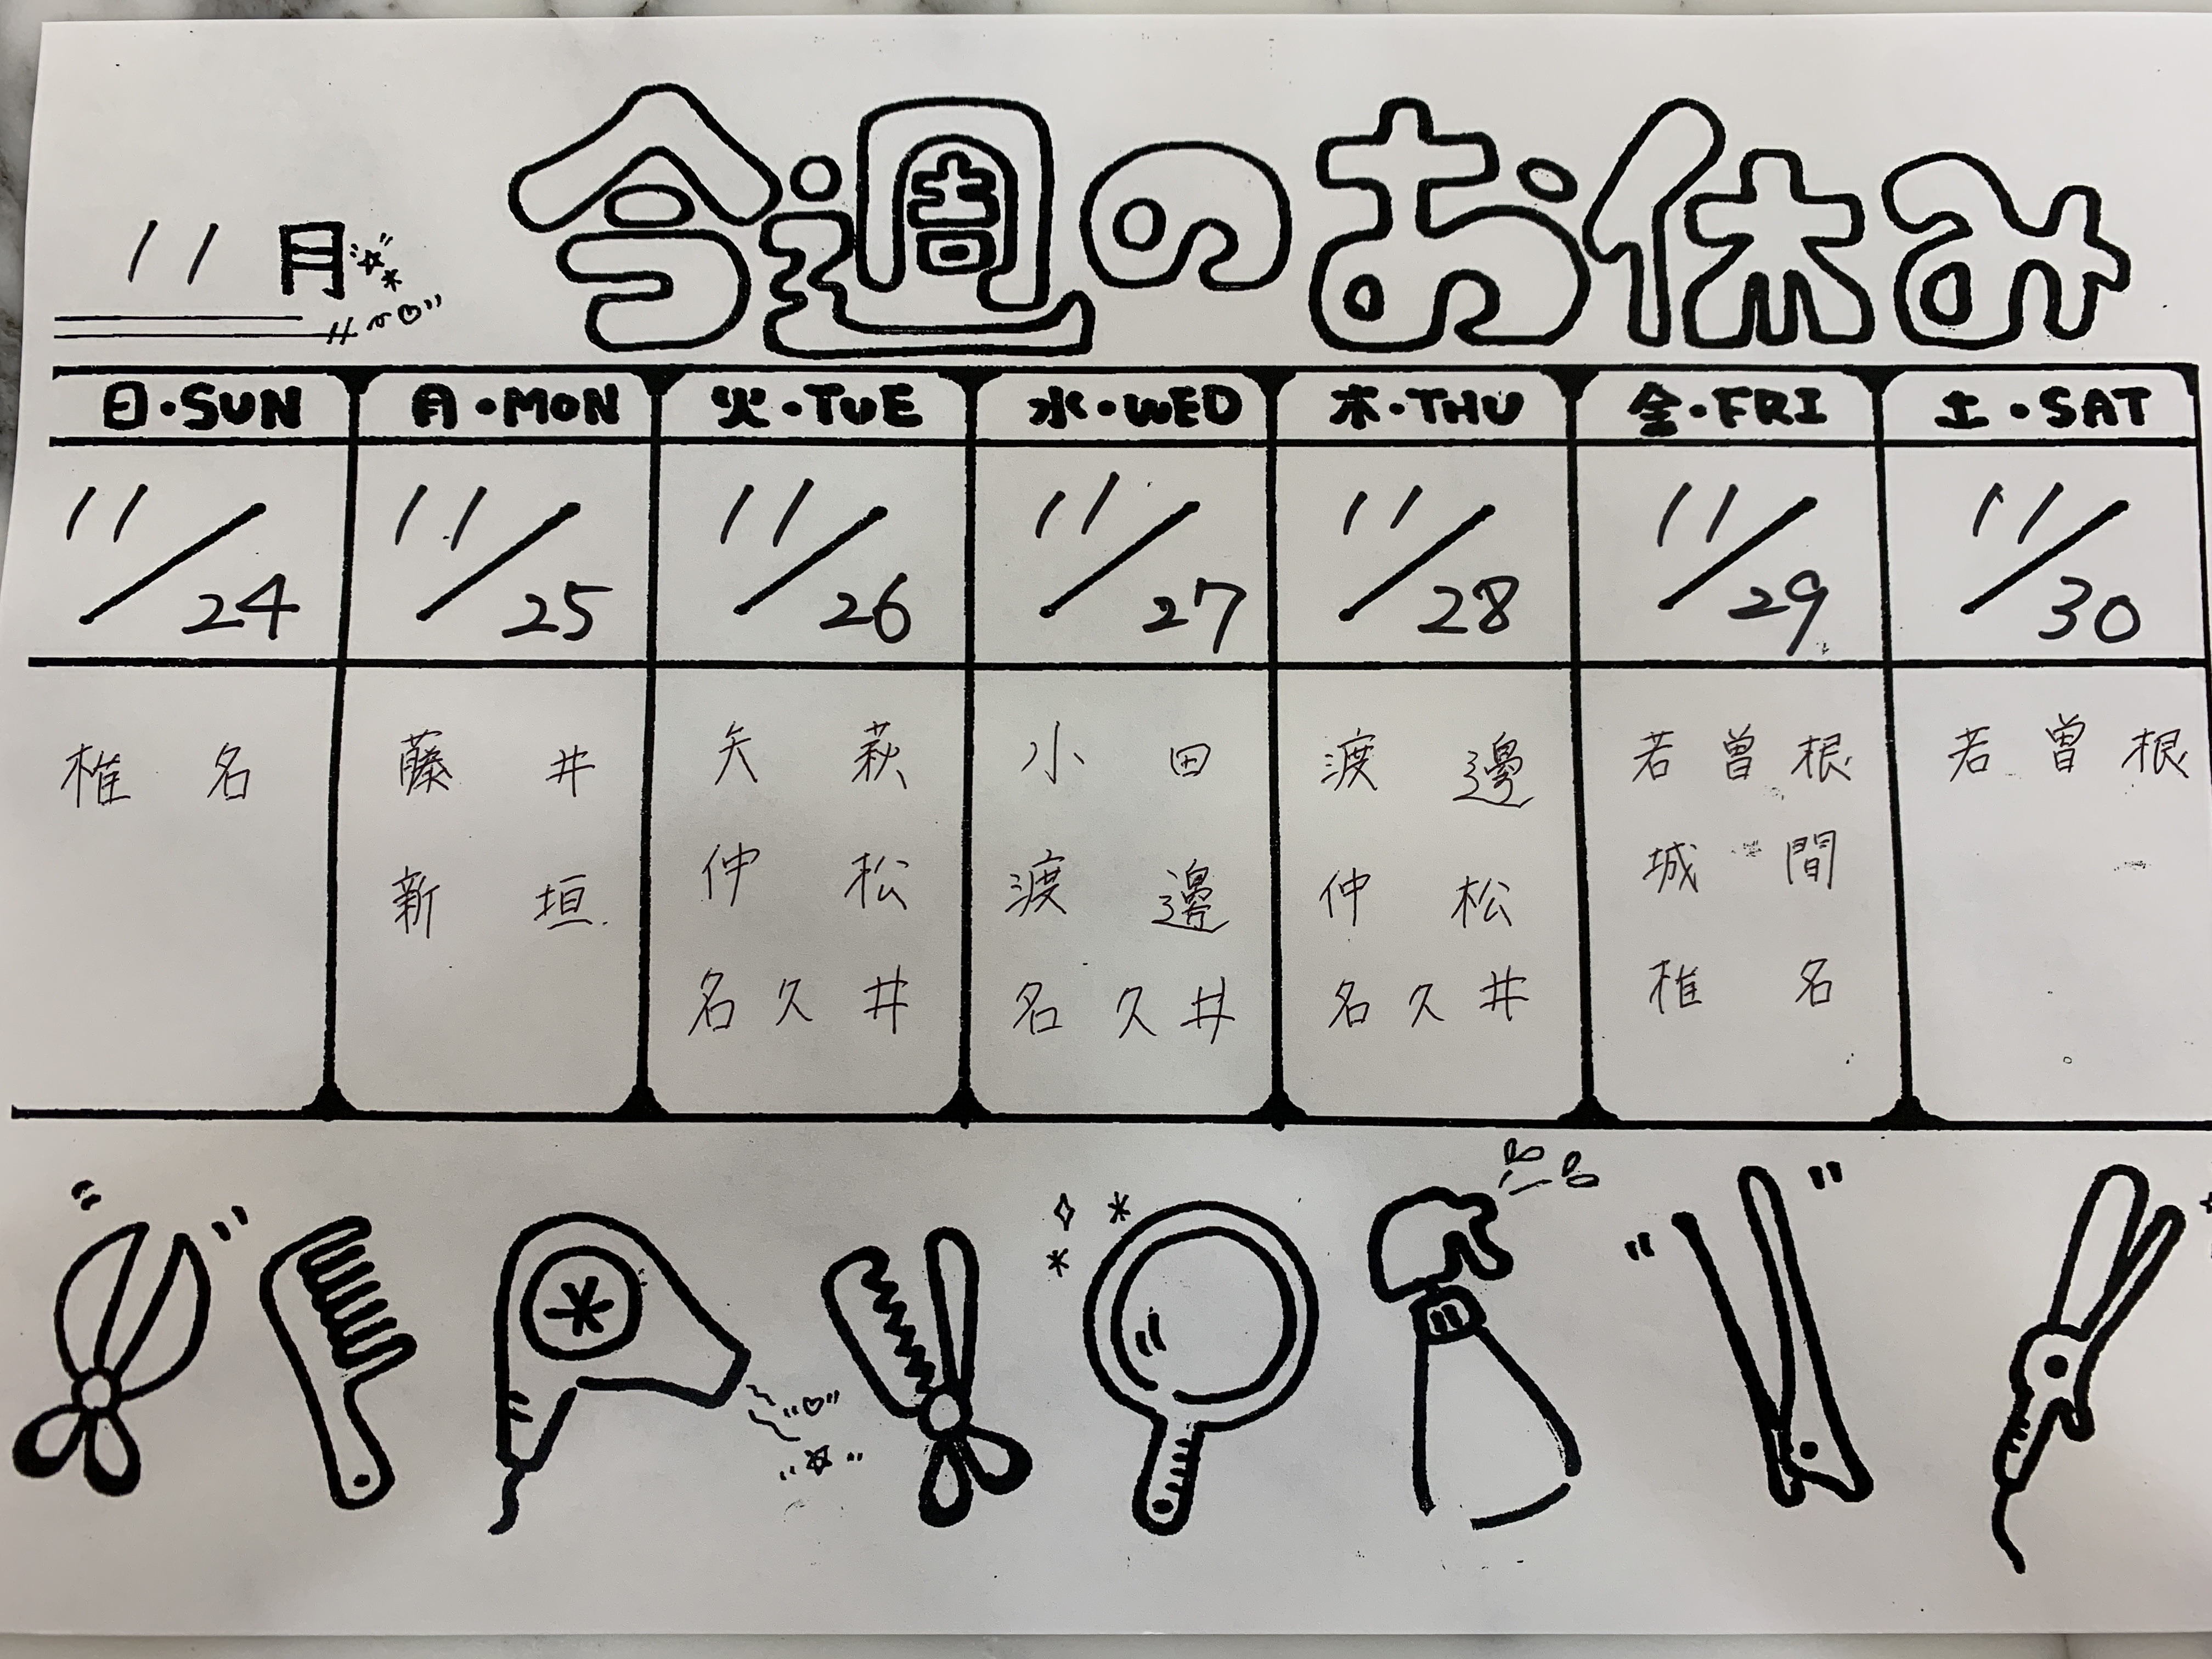 11月
今週のお休み
日・SUN 月・MON 火・TUE 水・WED 木・THU 金・FRI 土・SAT
11/24 11/25 11/26 11/27 11/28 11/29 11/30
椎名
藤井
新垣
矢萩
仲松
名久井
小田
渡邊
名久井
渡邊
仲松
名久井
若曽根
城間
椎名
若曽根